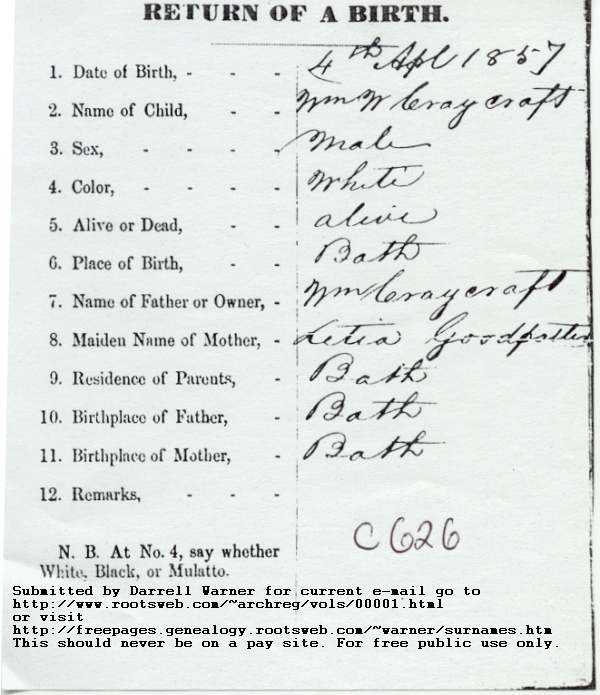 RETURN OF A BIRTH.
1. Date of Birth, - - - 4th Apl 1857
2. Name of Child, - - Wm W Craycraft
3. Sex, - - - - Male
4. Color, - - - - White
5. Alive or Dead, - - alive
6. Place of Birth, - - Bath
7. Name of Father or Owner, - Wm Craycraft
8. Maiden Name of Mother, - Letia Goodpaster
9. Residence of Parents, - Bath
10. Birthplace of Father, - Bath
11. Birthplace of Mother, - Bath
12. Remarks, - - -
C626
N. B. At No. 4, say whether
White, Black, or Mulatto.
Submitted by Darrell Warner for current e-mail go to
http://www.rootsweb.com/~archreg/vols/00001.html
or visit
http://freepages.genealogy.rootsweb.com/~warner/surnames.htm
This should never be on a pay site. For free public use only.